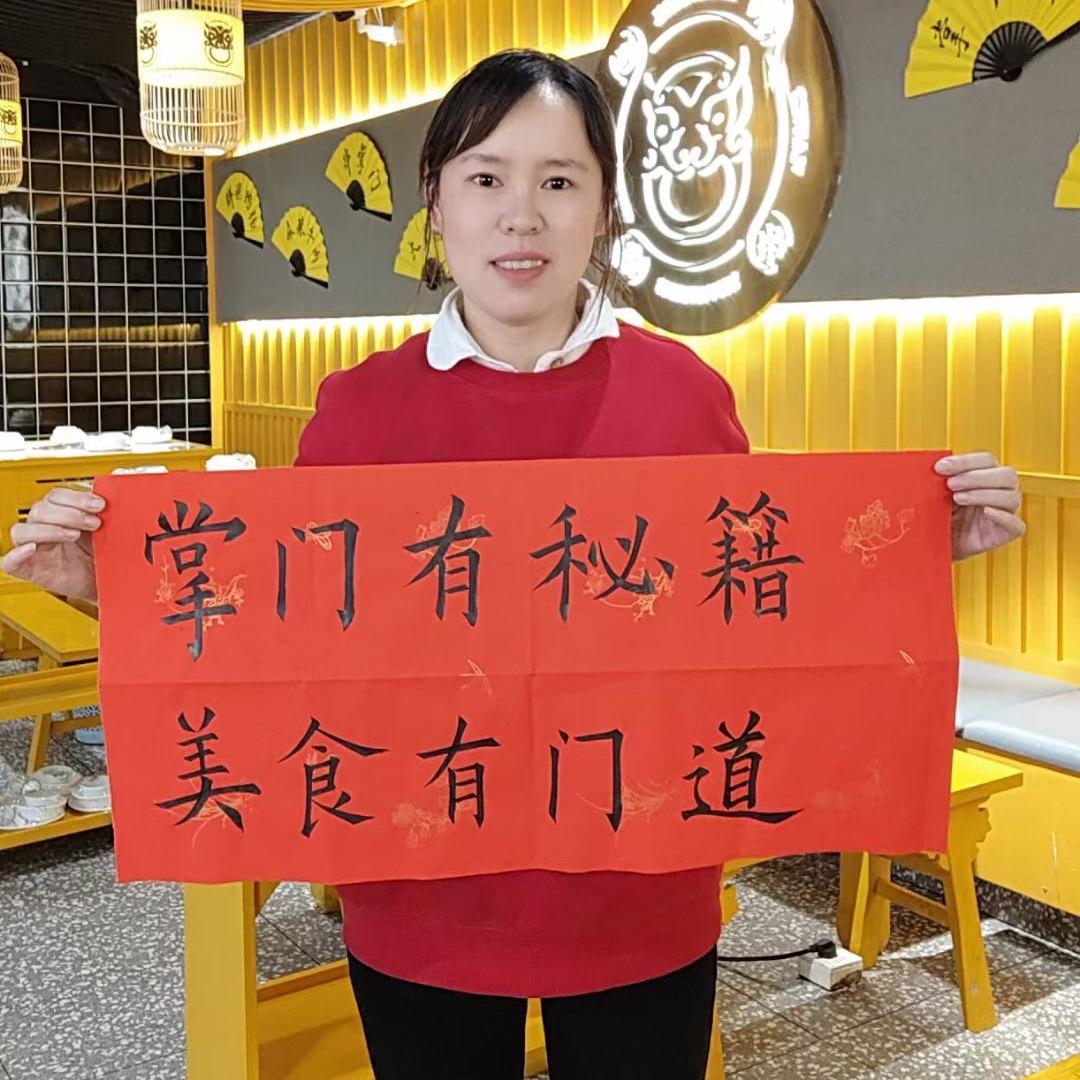 掌门有秘籍
美食有门道